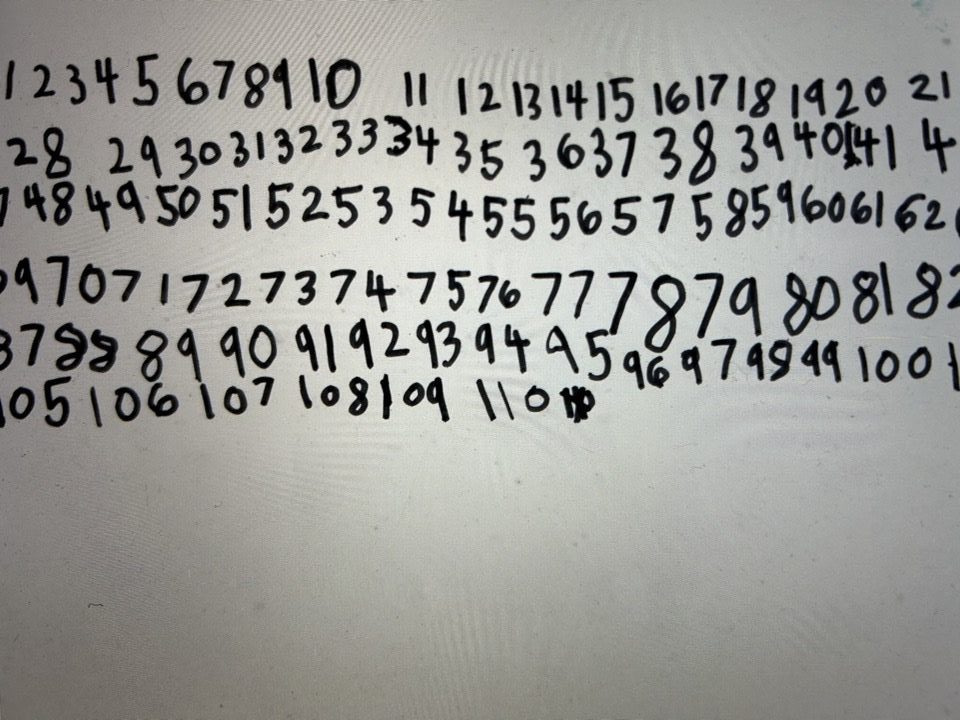 1 2 3 4 5 6 7 8 9 10 11 12 13 14 15 16 17 18 19 20 21
28 29 30 31 32 33 34 35 36 37 38 39 40 41 4
7 48 49 50 51 52 53 54 55 56 57 58 59 60 61 62
9 70 71 72 73 74 75 76 77 78 79 80 81 82
87 88 89 90 91 92 93 94 95 96 97 98 99 100 1
105 106 107 108 109 110